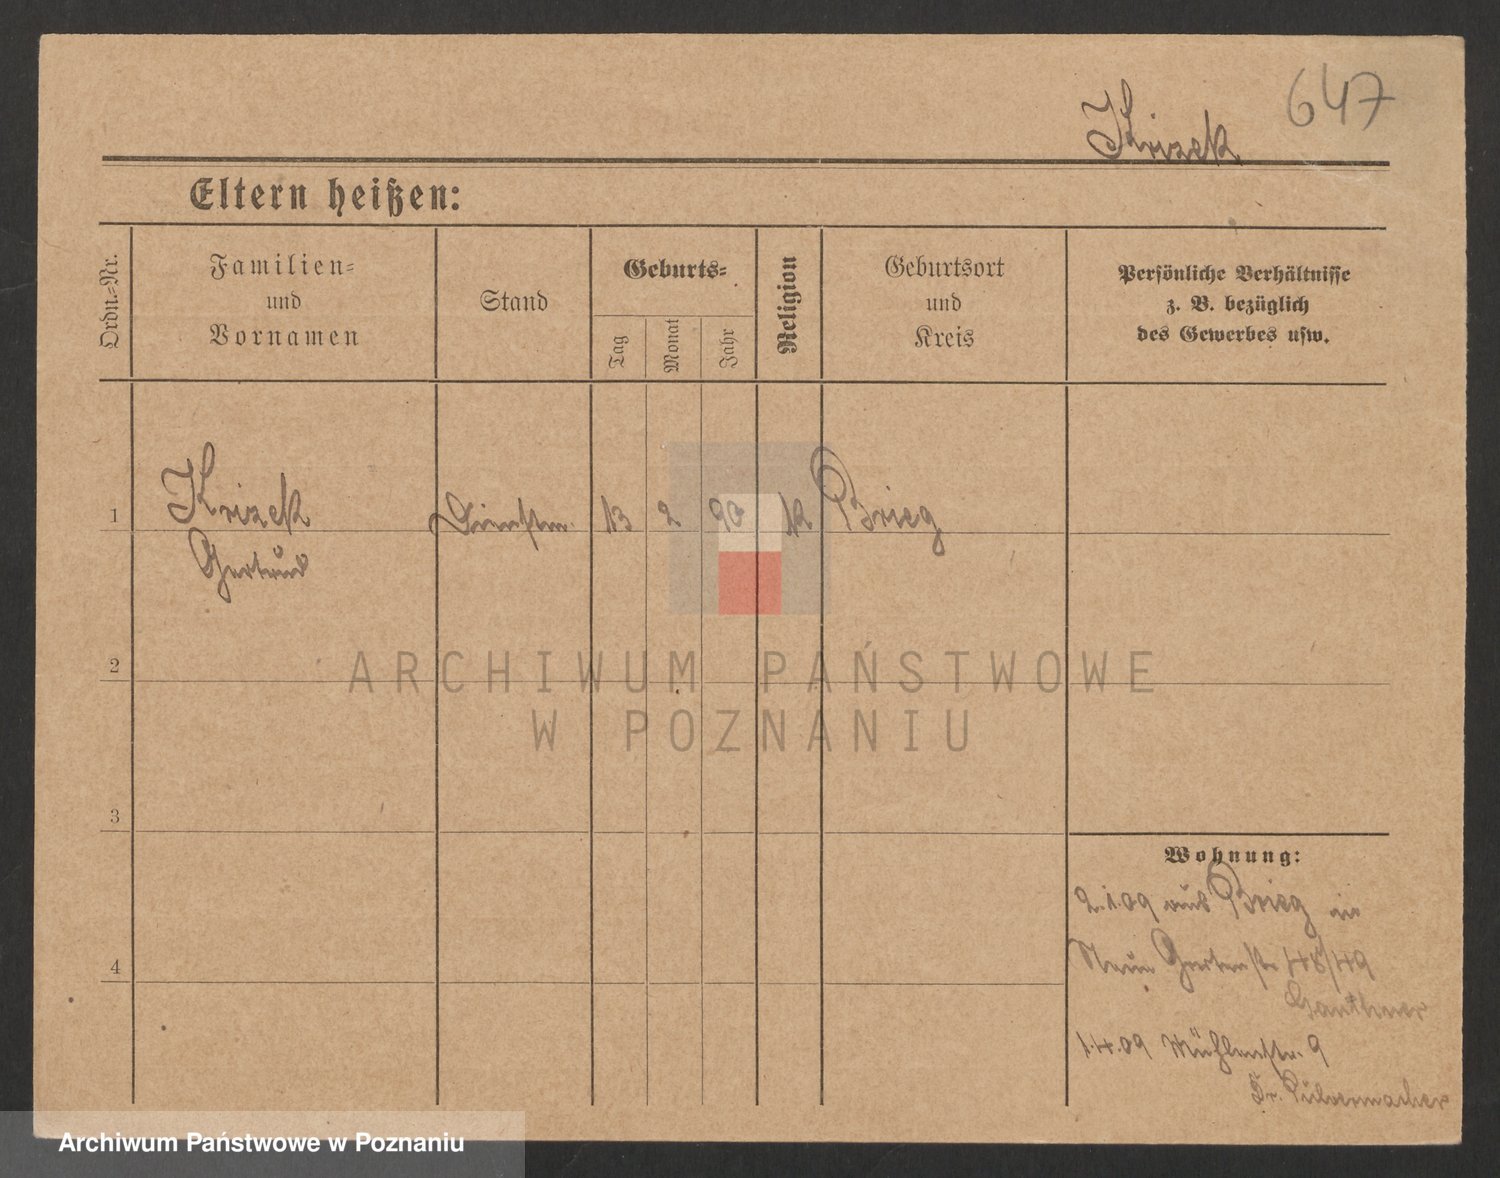 647
Krizek
Eltern heißen:
Ordn.-Nr.
Familien-
und
Vornamen
Stand
Geburts-
Tag
Monat
Jahr
Religion
Geburtsort
und
Kreis
Persönliche Verhältnisse
z. B. bezüglich
des Gewerbes usw.
1
Krizek
Gertrud
Dienstm.
13
2
90
K
Brieg
2
3
4
Wohnung:
2.1.09 aus Brieg in
Neue Gartenstr 48/49
1.4.09 Mühlenstr. 9
Fr. Pulvermacher
ARCHIWUM PAŃSTWOWE
W POZNANIU
Archiwum Państwowe w Poznaniu